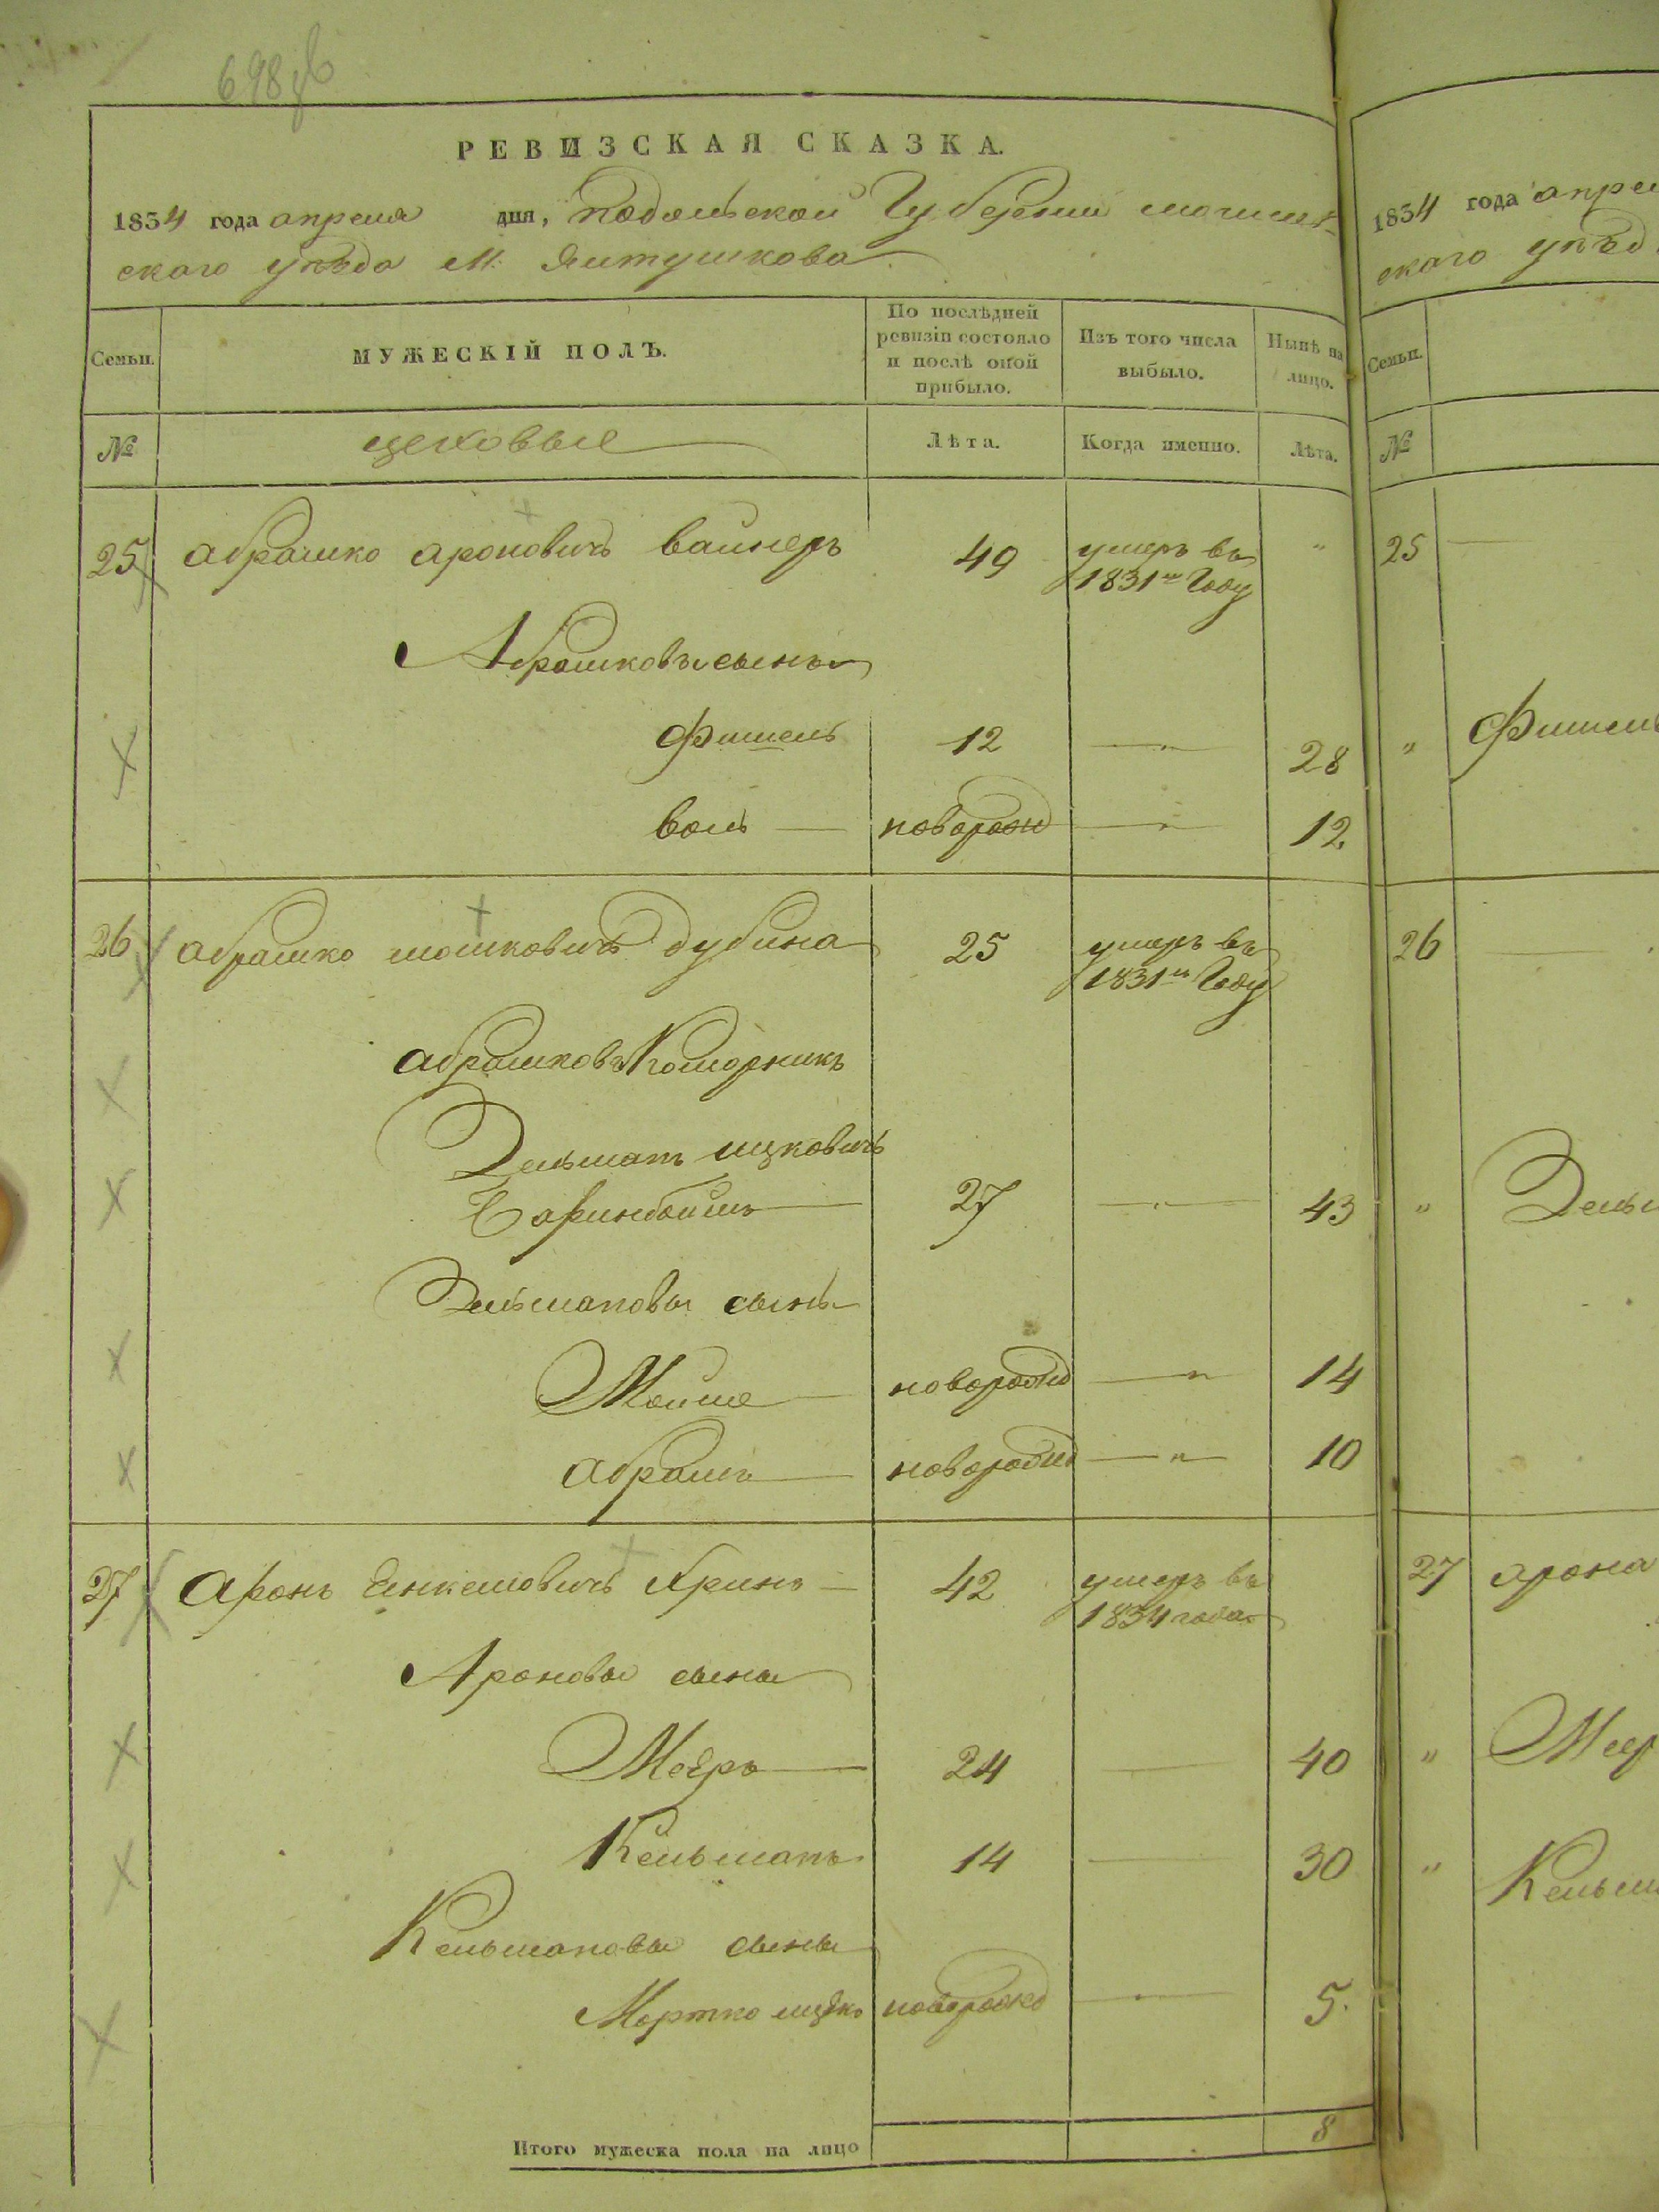 698
РЕВИЗСКАЯ СКАЗКА.
1834 года апреля дня, подольской Губернии могилев-
скаго уѣзда М. Ялтушкова
Семьи.
МУЖЕСКІЙ ПОЛЪ.
По послѣдней ревизіи состояло и послѣ оной прибыло.
Изъ того числа выбыло.
Нынѣ на лицо.
№
цеховые
Лѣта.
Когда именно.
Лѣта.
25 абрамко ароновичъ вайнеръ 49 умеръ въ 1831м Году "
Абрамковы сыны
Фишель 12 28
воль новорожд 12.
26 абрамко мошковичъ дубина 25 умеръ въ 1831м Году
абрамковъ Коморникъ
Зельманъ ицковичъ
27 43
Зельмановы сыны
Мойше новорожд 14
абрамъ новорожд 10
27 аронъ Енкелевичъ Кринъ 42 умеръ въ 1834 года
Ароновы сыны
Мееръ 24 40
Кельманъ 14 30
Кельмановы сыны
Мортко ицко новорожд 5.
Итого мужеска пола на лицо 8
1834 года апрел
скаго уѣзд
Семьи.
№
25
" Фишел
26
" Зельм
27 арона
" Меер
" Кельм